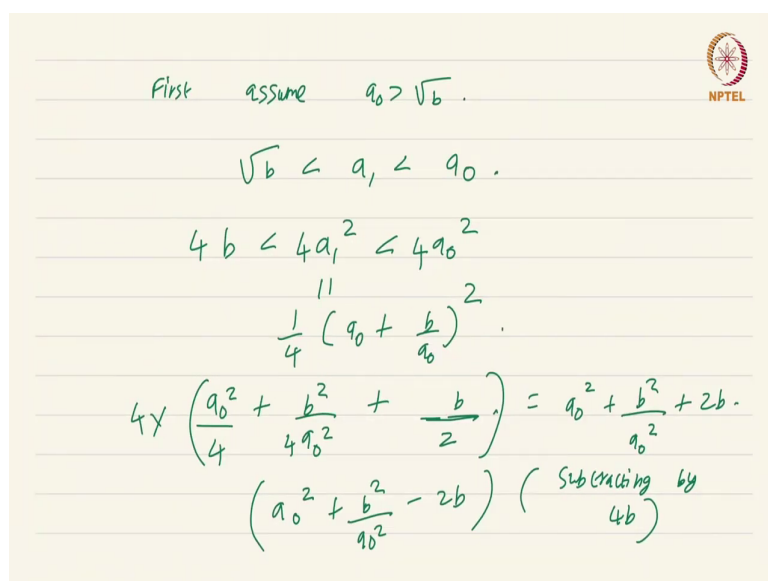 First assume a₀ > √b.
NPTEL
√b < a₁ < a₀.
4b < 4a₁² < 4a₀²
||
1/4 (a₀ + b/a₀)².
4 × (a₀²/4 + b²/4a₀² + b/2) = a₀² + b²/a₀² + 2b.
(a₀² + b²/a₀² - 2b) (Subtracting by
4b)